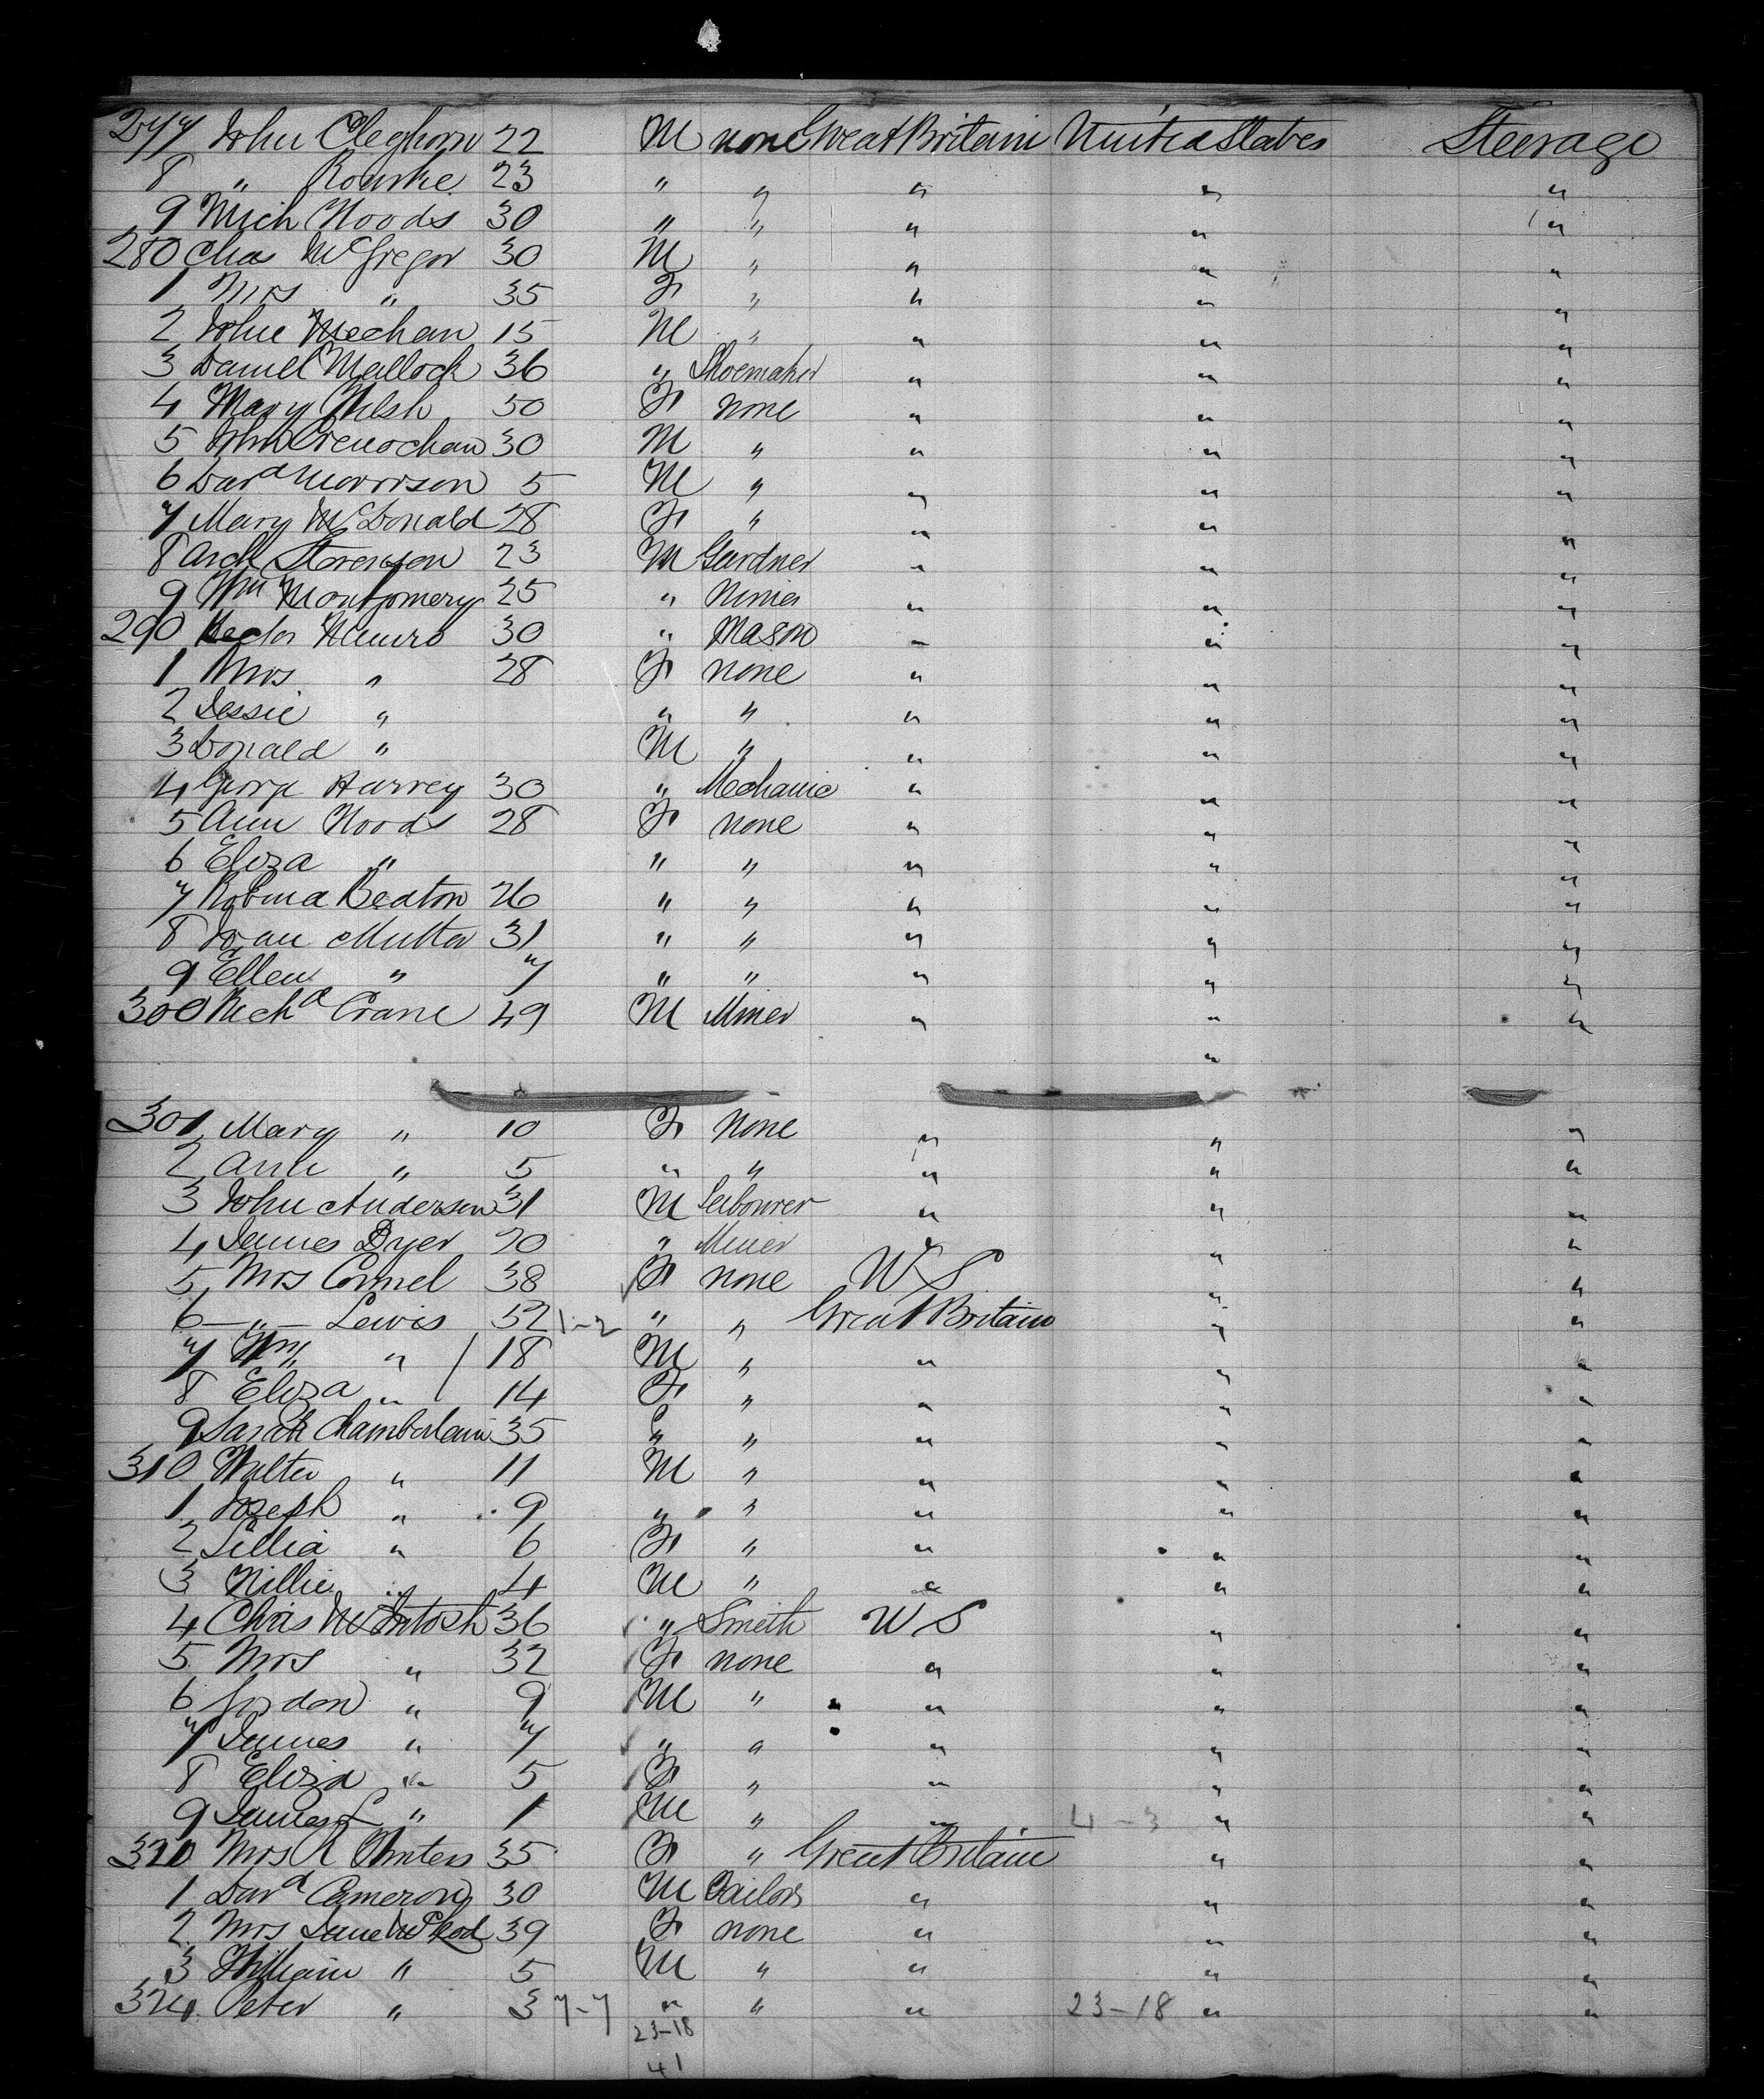 277 John Cleghorn 22 M none Great Britain United States Steerage
8 " Rourke 23 " " " " "
9 Mich Woods 30 " " " " "
280 Chas McGregor 30 M " " " "
1 Mrs " 35 F " " " "
2 John Meehan 15 M " " " "
3 Daniel Malloch 36 " Shoemaker " " "
4 Mary Welsh 50 F none " " "
5 John 30 M " " " "
6 Davd Morrison 5 M " " " "
7 Mary McDonald 28 F " " " "
8 Arch Stevenson 23 M Gardner " " "
9 Wm Montgomery 25 " " " "
290 Hector Munro 30 " Mason " " "
1 Mrs " 28 F none " " "
2 Jessie " " " " " "
3 Donald " M " " " "
4 George Harvey 30 " Mechanic " " "
5 Ann Woods 28 F none " " "
6 Eliza " " " " " "
7 Robina Beaton 26 " " " " "
8 Jean Mutter 31 " " " " "
9 Ellen " 7 " " " " "
300 Crane 49 M Miner " " "
"
301 Mary " 10 F none " " "
2 Ann " 5 " " " " "
3 John Anderson 31 M " " "
4 James Dyer 20 " Miner " " "
5 Mrs Connel 38 F none U S " "
6 — " — Lewis 52 1-2 " " Great Britain " "
7 Wm " 18 M " " " "
8 Eliza " 14 F " " " "
9 Sarah Chamberlain 35 " " " " "
310 Walter " 11 M " " " "
1 Joseph " 9 " " " " "
2 Lillia " 6 F " " " "
3 Willie " 4 M " " " "
4 Chris McIntosh 36 " Smith U S " "
5 Mrs " 32 F none " " "
6 Gordon " 9 M " " " "
7 James " 7 " " " " "
8 Eliza " 5 F " " " "
9 James L " 1 M " " 4-3 " "
320 Mrs A Winters 35 F " Great Britain " "
1 Davd Cameron 30 M " " "
2 Mrs Jane 39 F none " " "
3 William " 5 M " " " "
324 Peter " 3 7-7 " " " 23-18 " "
23-18
41